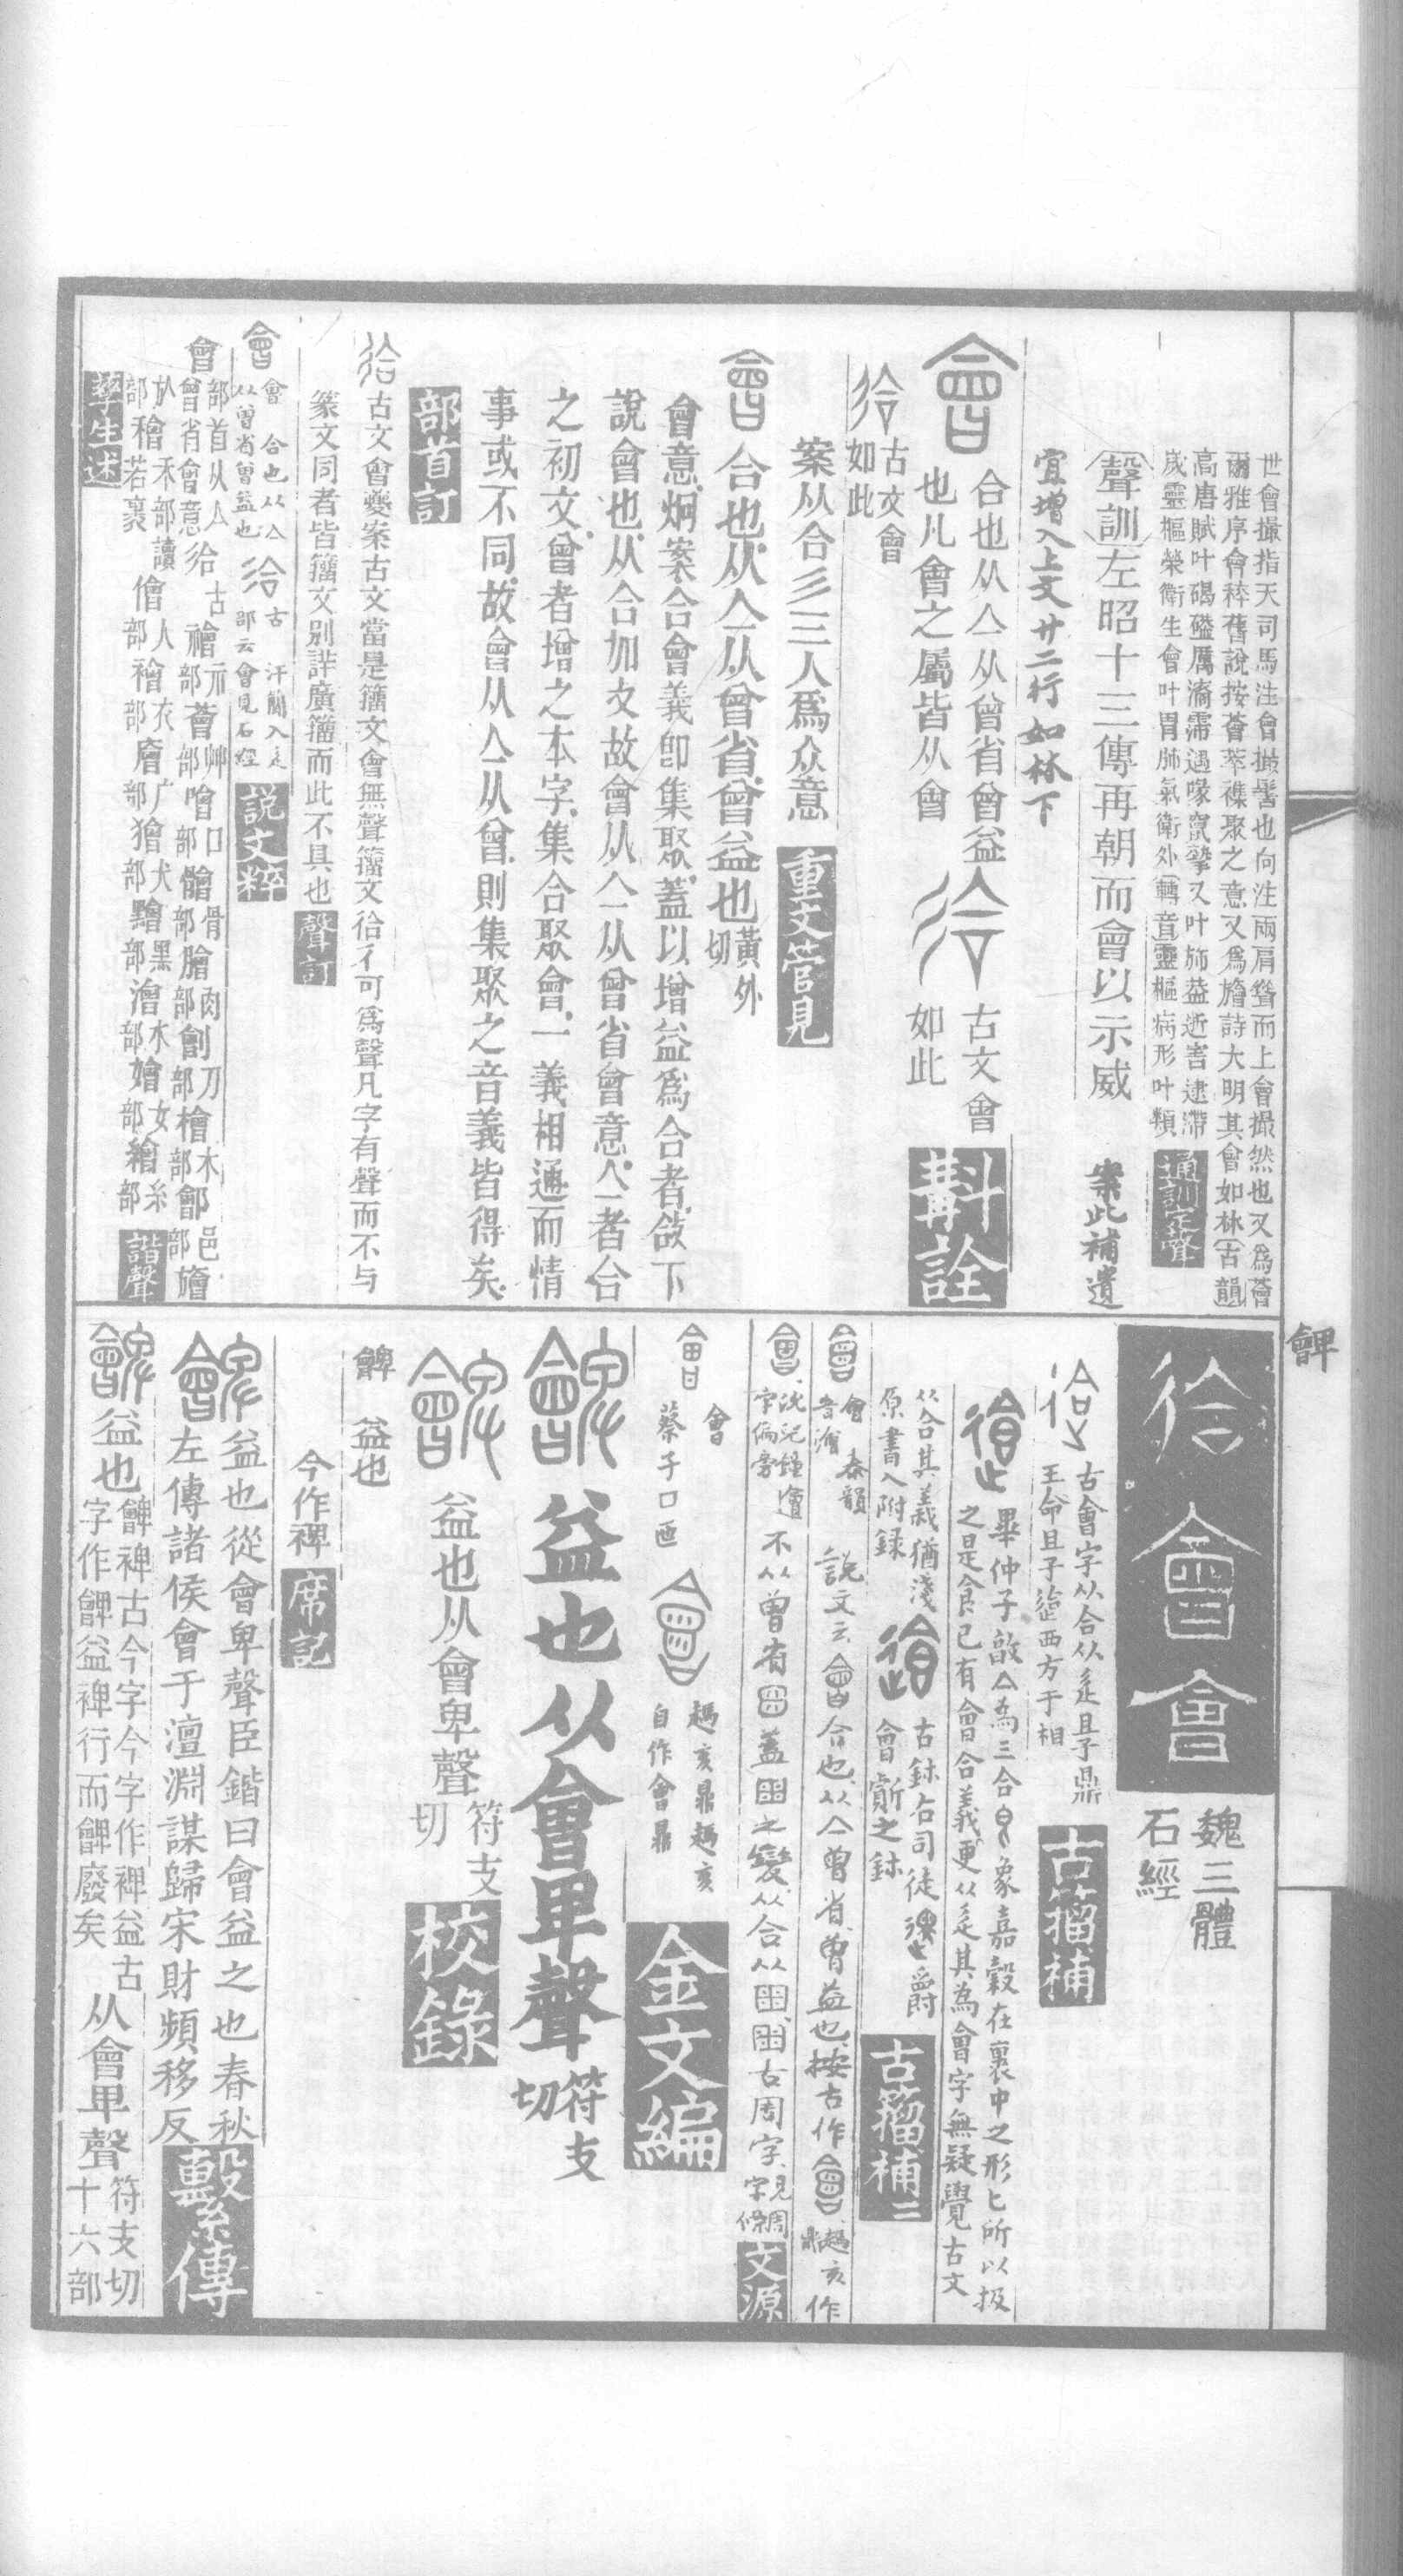 世會撮指天司馬注會撮髻也向注兩肩聳而上會撮然也又爲薈
爾雅序會稡舊說按薈萃襍聚之意又爲旝詩大明其會如林(古韻)
高唐賦叶碣磕厲濡霈邁喙竄摯又叶斾蓋逝害逮滯
歲靈樞榮衛生會叶胃肺氣衛外(轉音)靈樞病形叶類
通訓定聲
(聲訓)左昭十三傳再朝而會以示威
案此補遺
宜增入上文廿二行如林下
會
合也从亼从曾省曾益
也凡會之屬皆从會
㣛
古文會
如此
斠詮
㣛
古文會
如此
案从合彡三人爲众意
重文管見
會
合也从亼从曾省曾益也
黃外
切
會意炯案合會義卽集聚蓋以增益爲合者故下
說會也从合加攴故會从亼从曾省會意亼者合
之初文曾者增之本字集合聚會一義相通而情
事或不同故會从亼从曾則集聚之音義皆得矣
部首訂
㣛
古文會夔案古文當是籒文會無聲籒文㣛彳可爲聲凡字有聲而不与
篆文同者皆籒文別詳廣籒而此不具也
聲訂
會
會 合也从亼
从曾省曾益也
㣛
古 汗簡入辵
部云會見石經
說文粹
會
部首从亼
曾省會意
㣛
古
禬示部
薈艸部
噲口部
䯤骨部
膾肉部
劊刀部
檜木部
鄶邑部
旝㫃部
穧禾部
讀若裹
儈人部
襘衣部
廥广部
獪犬部
黵黑部
澮水部
嬒女部
繪糸部
諧聲
孳生述
㣛 會 會
魏三體
石經
古會字从合从辵且子鼎
王命且子迨西方于相
古籀補
畢仲子𣪘亼為三合皀象嘉穀在裹中之形匕所以扱
之是食已有會合義更从辵其為會字無疑覺古文
从合其義猶淺
原書入附錄
古鉨右司徒 爵
會 之鉨
古籀補二
會
會 泰韻
音澮
說文云會合也从亼曾省曾益也按古作會趞亥作
鼎
會
沇兒鐘䢈
字偏旁
不从曾省 蓋 之變从合从 古周字
見周
字條
文源
會
會
蔡子口匜
會
趞亥鼎趞亥
自作會鼎
金文編
䇑
益也从會卑聲
符支
切
䇑
益也从會卑聲
符支
切
校錄
朇 益也
今作裨
席記
朇
益也從會卑聲臣鍇曰會益之也春秋
左傳諸侯會于澶淵謀歸宋財頻移反
繫傳
朇
益也
朇裨古今字今字作裨益古
字作朇益裨行而朇廢矣
从會卑聲
符支切
十六部
會 朇